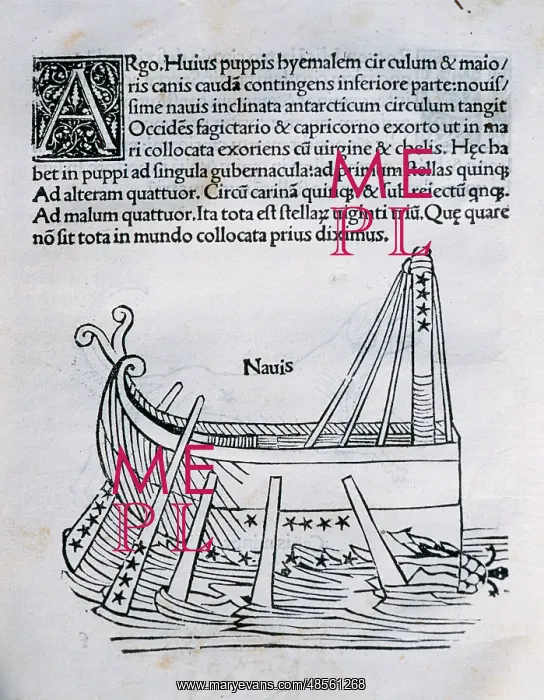 ARgo. Huius puppis hyemalem circulum & maio/
ris canis caudā contingens inferiore parte: nouiſ/
ſime nauis inclinata antarcticum circulum tangit
Occidēs ſagictario & capricorno exorto ut in ma
ri collocata exoriens cū uirgine & chelis. Hęc ha
bet in puppi ad ſingula gubernacula: ad primum ſtellas quinqꝫ
Ad alteram quattuor. Circū carinā quinqꝫ & ſub reiectū qnqꝫ.
Ad malum quattuor. Ita tota eſt ſtellaꝝ uiginti triū. Quę quare
nō ſit tota in mundo collocata prius diximus.
ME
PL
Nauis
ME
PL
www.maryevans.com/48561268